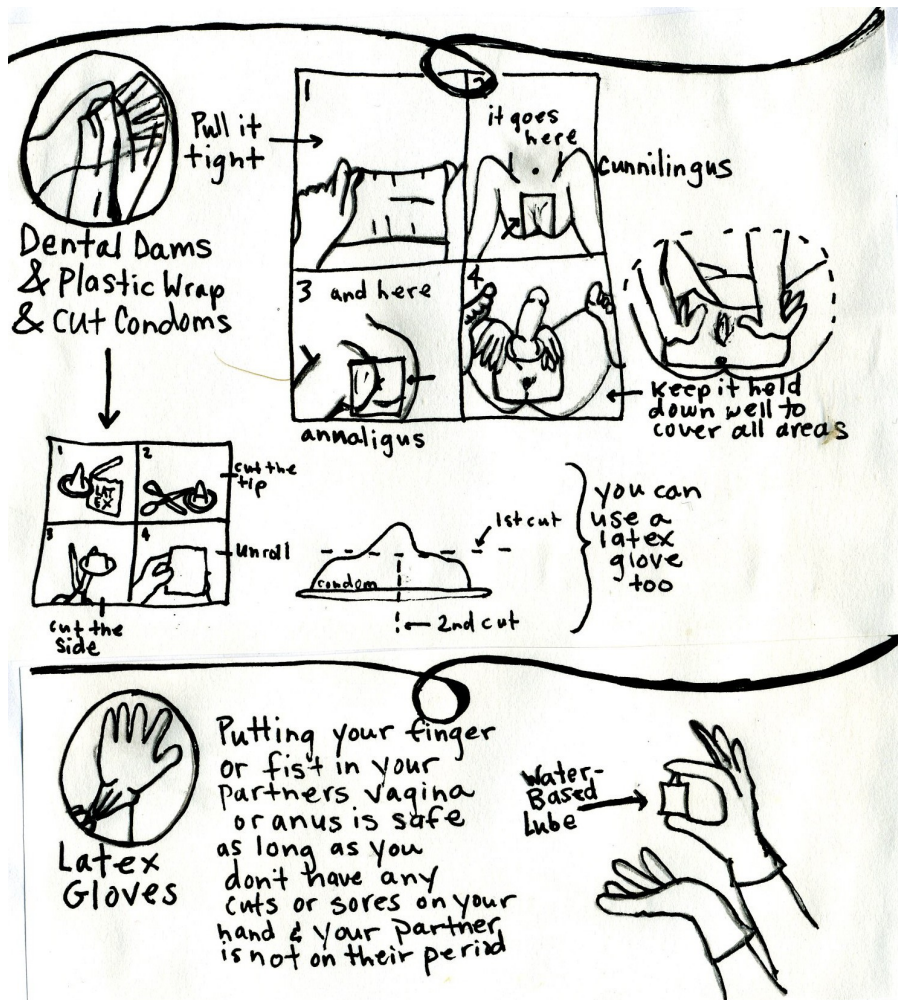 Pull it
tight
Dental Dams
& Plastic Wrap
& cut Condoms
1
2
it goes
here
cunnilingus
3 and here
4
annaligus
Keep it held
down well to
cover all areas
1
LAT
EX
2
cut the
tip
3
cut the
side
4
unroll
1st cut
condom
2nd cut
you can
use a
latex
glove
too
Latex
Gloves
Putting your finger
or fist in your
partners vagina
or anus is safe
as long as you
don't have any
cuts or sores on your
hand & your partner
is not on their period
Water-
Based
Lube